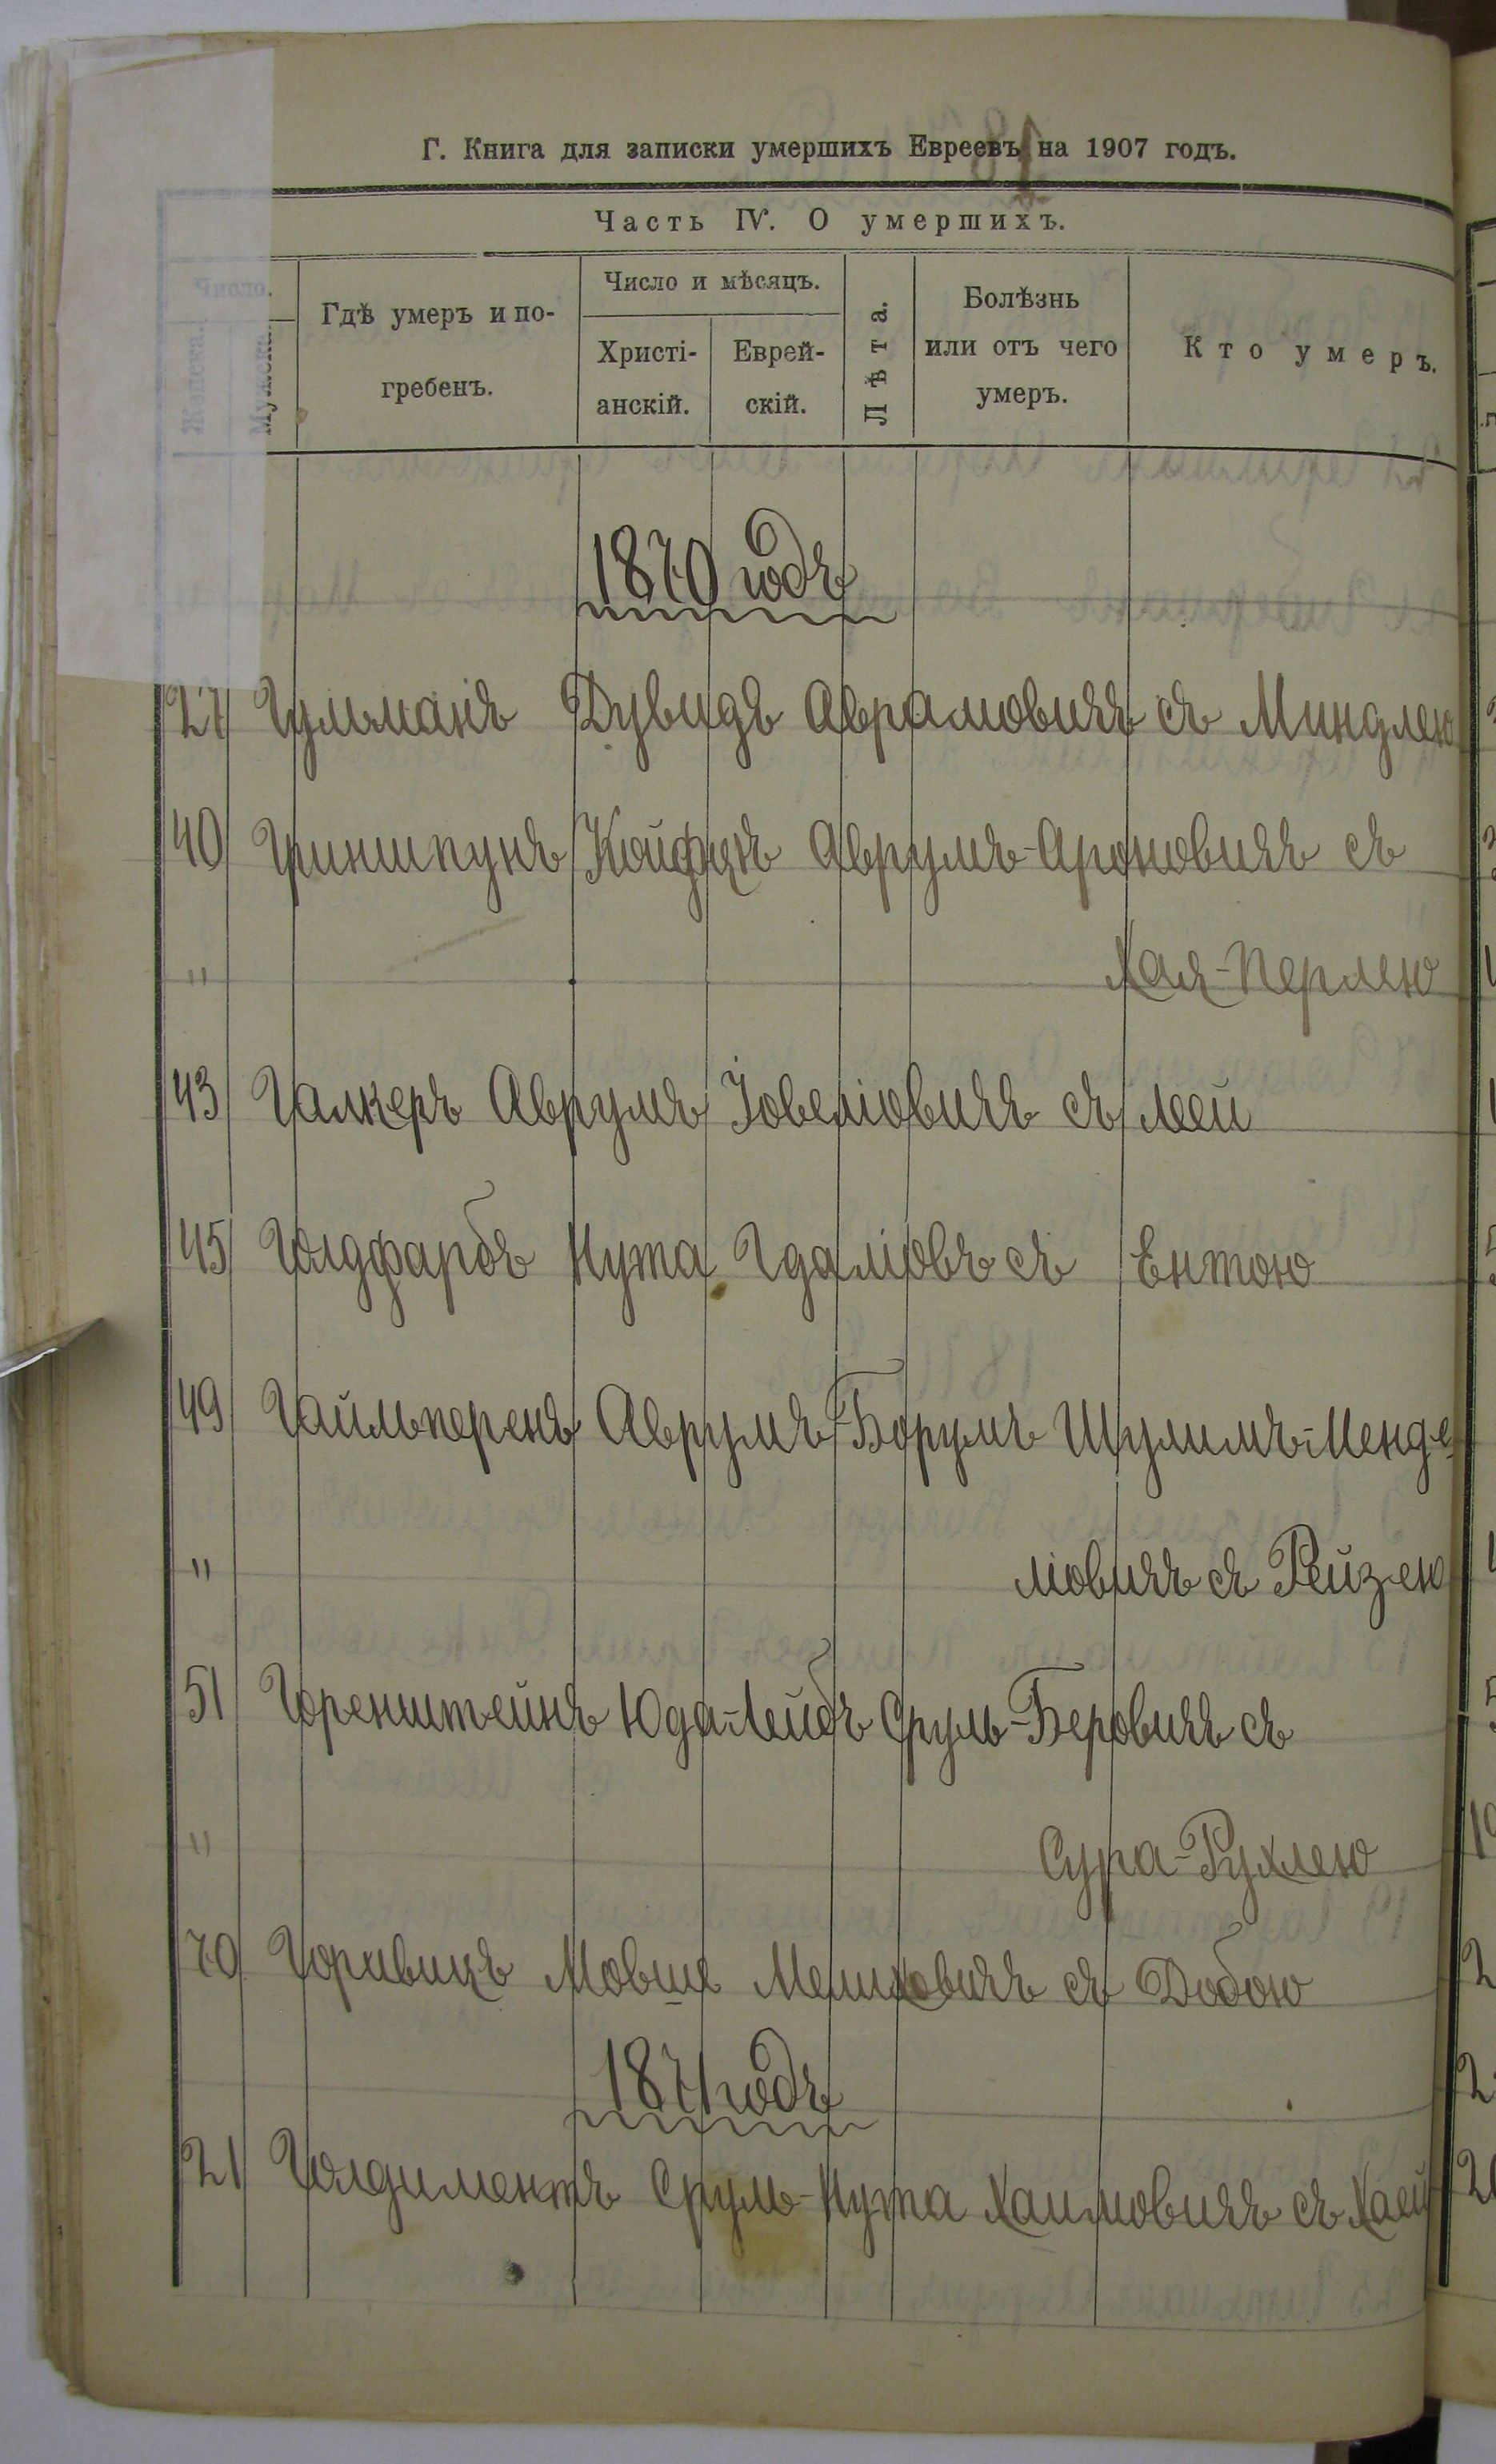 Г. Книга для записки умершихъ Евреевъ на 1907 годъ.
Часть IV. О умершихъ.
Число.
Женска.
Мужска.
Гдѣ умеръ и по-
гребенъ.
Число и мѣсяцъ.
Христі-
анскій.
Еврей-
скій.
Лѣта.
Болѣзнь
или отъ чего
умеръ.
Кто умеръ.
1870 годъ
27 Гульманъ Дувидъ Аврамовичъ съ Миндлею
40 Гриншпунъ Койфцъ Аврумъ-Ароновичъ съ
" Хая-Перлею
43 Галкеръ Аврумъ Іовеліовичъ съ Леи
45 Голдфарбъ Нута Гдаліовъ съ Ентою
49 Гайльперенъ Аврумъ-Борумъ Шулимъ-Менде
" ліовичъ съ Рейзею
51 Горенштейнъ Юда-Лейбъ Сруль-Беровичъ съ
" Сура-Рухлею
70 Горивицъ Мовше Мелиховичъ съ Добою
1871 годъ
21 Голдиментъ Сруль-Нута Хаимовичъ съ Хаей